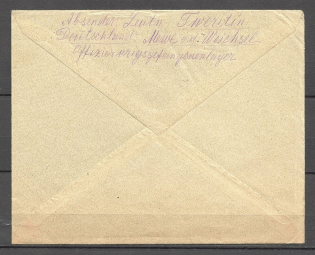 Absender Leutn. Twerdin.
Deutschland: Mewe a. Weichsel
Offizierkriegsgefangenenlager